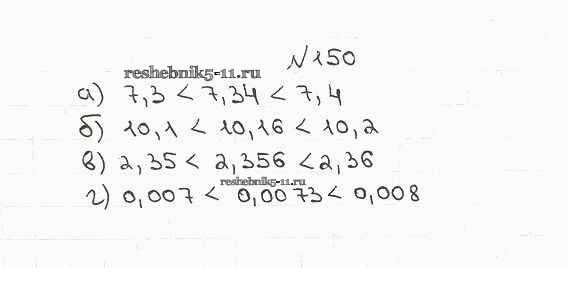 №150
reshebnik5-11.ru
а) 7,3 < 7,34 < 7,4
б) 10,1 < 10,16 < 10,2
в) 2,35 < 2,356 < 2,36
reshebnik5-11.ru
г) 0,007 < 0,0073 < 0,008